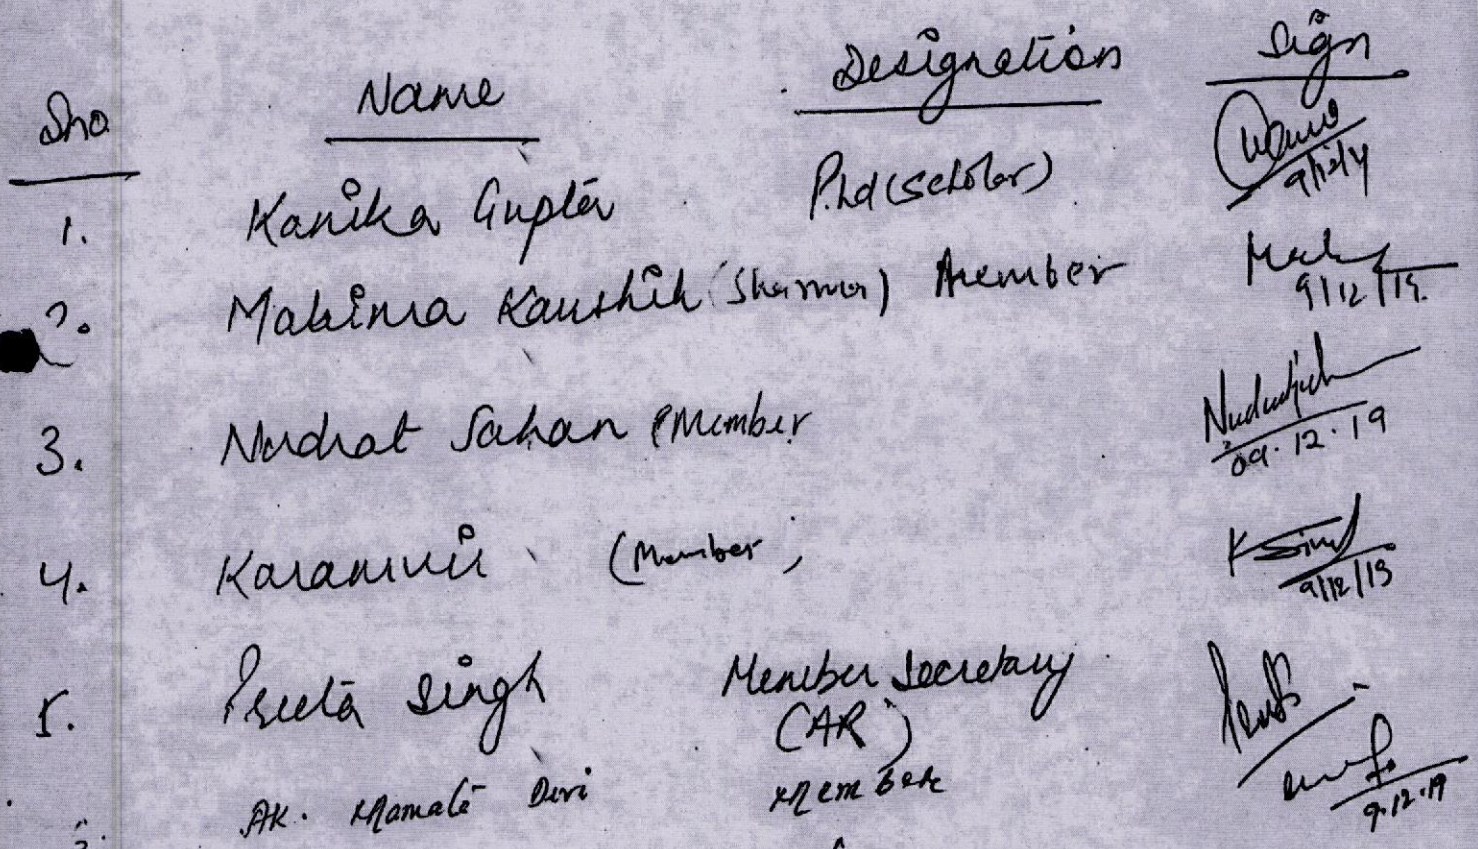 Sno Name Designation Sign
1. Kanika Gupta P.hd (Scholar)
9/12/19
2. Mahima Kaushik (Sharma) Member
9/12/19.
3. Nudrat Jahan (Member
09.12.19
4. Karamvir (Member)
9/12/19
5. Preeta Singh Member Secretary
(AR)
AK. Mamata Devi Member
9.12.19